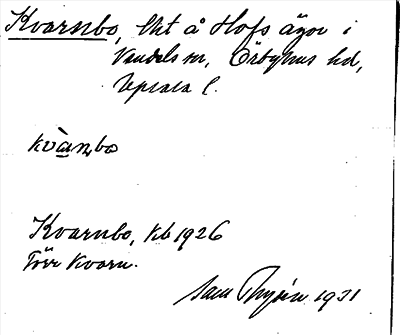 Kvarnbo, lht å Hofs ägor i
Vendels sn, Örbyhus hd,
Uppsala l.
kvàrnbo
Kvarnbo, kb 1926
Förr kvarn.
1931